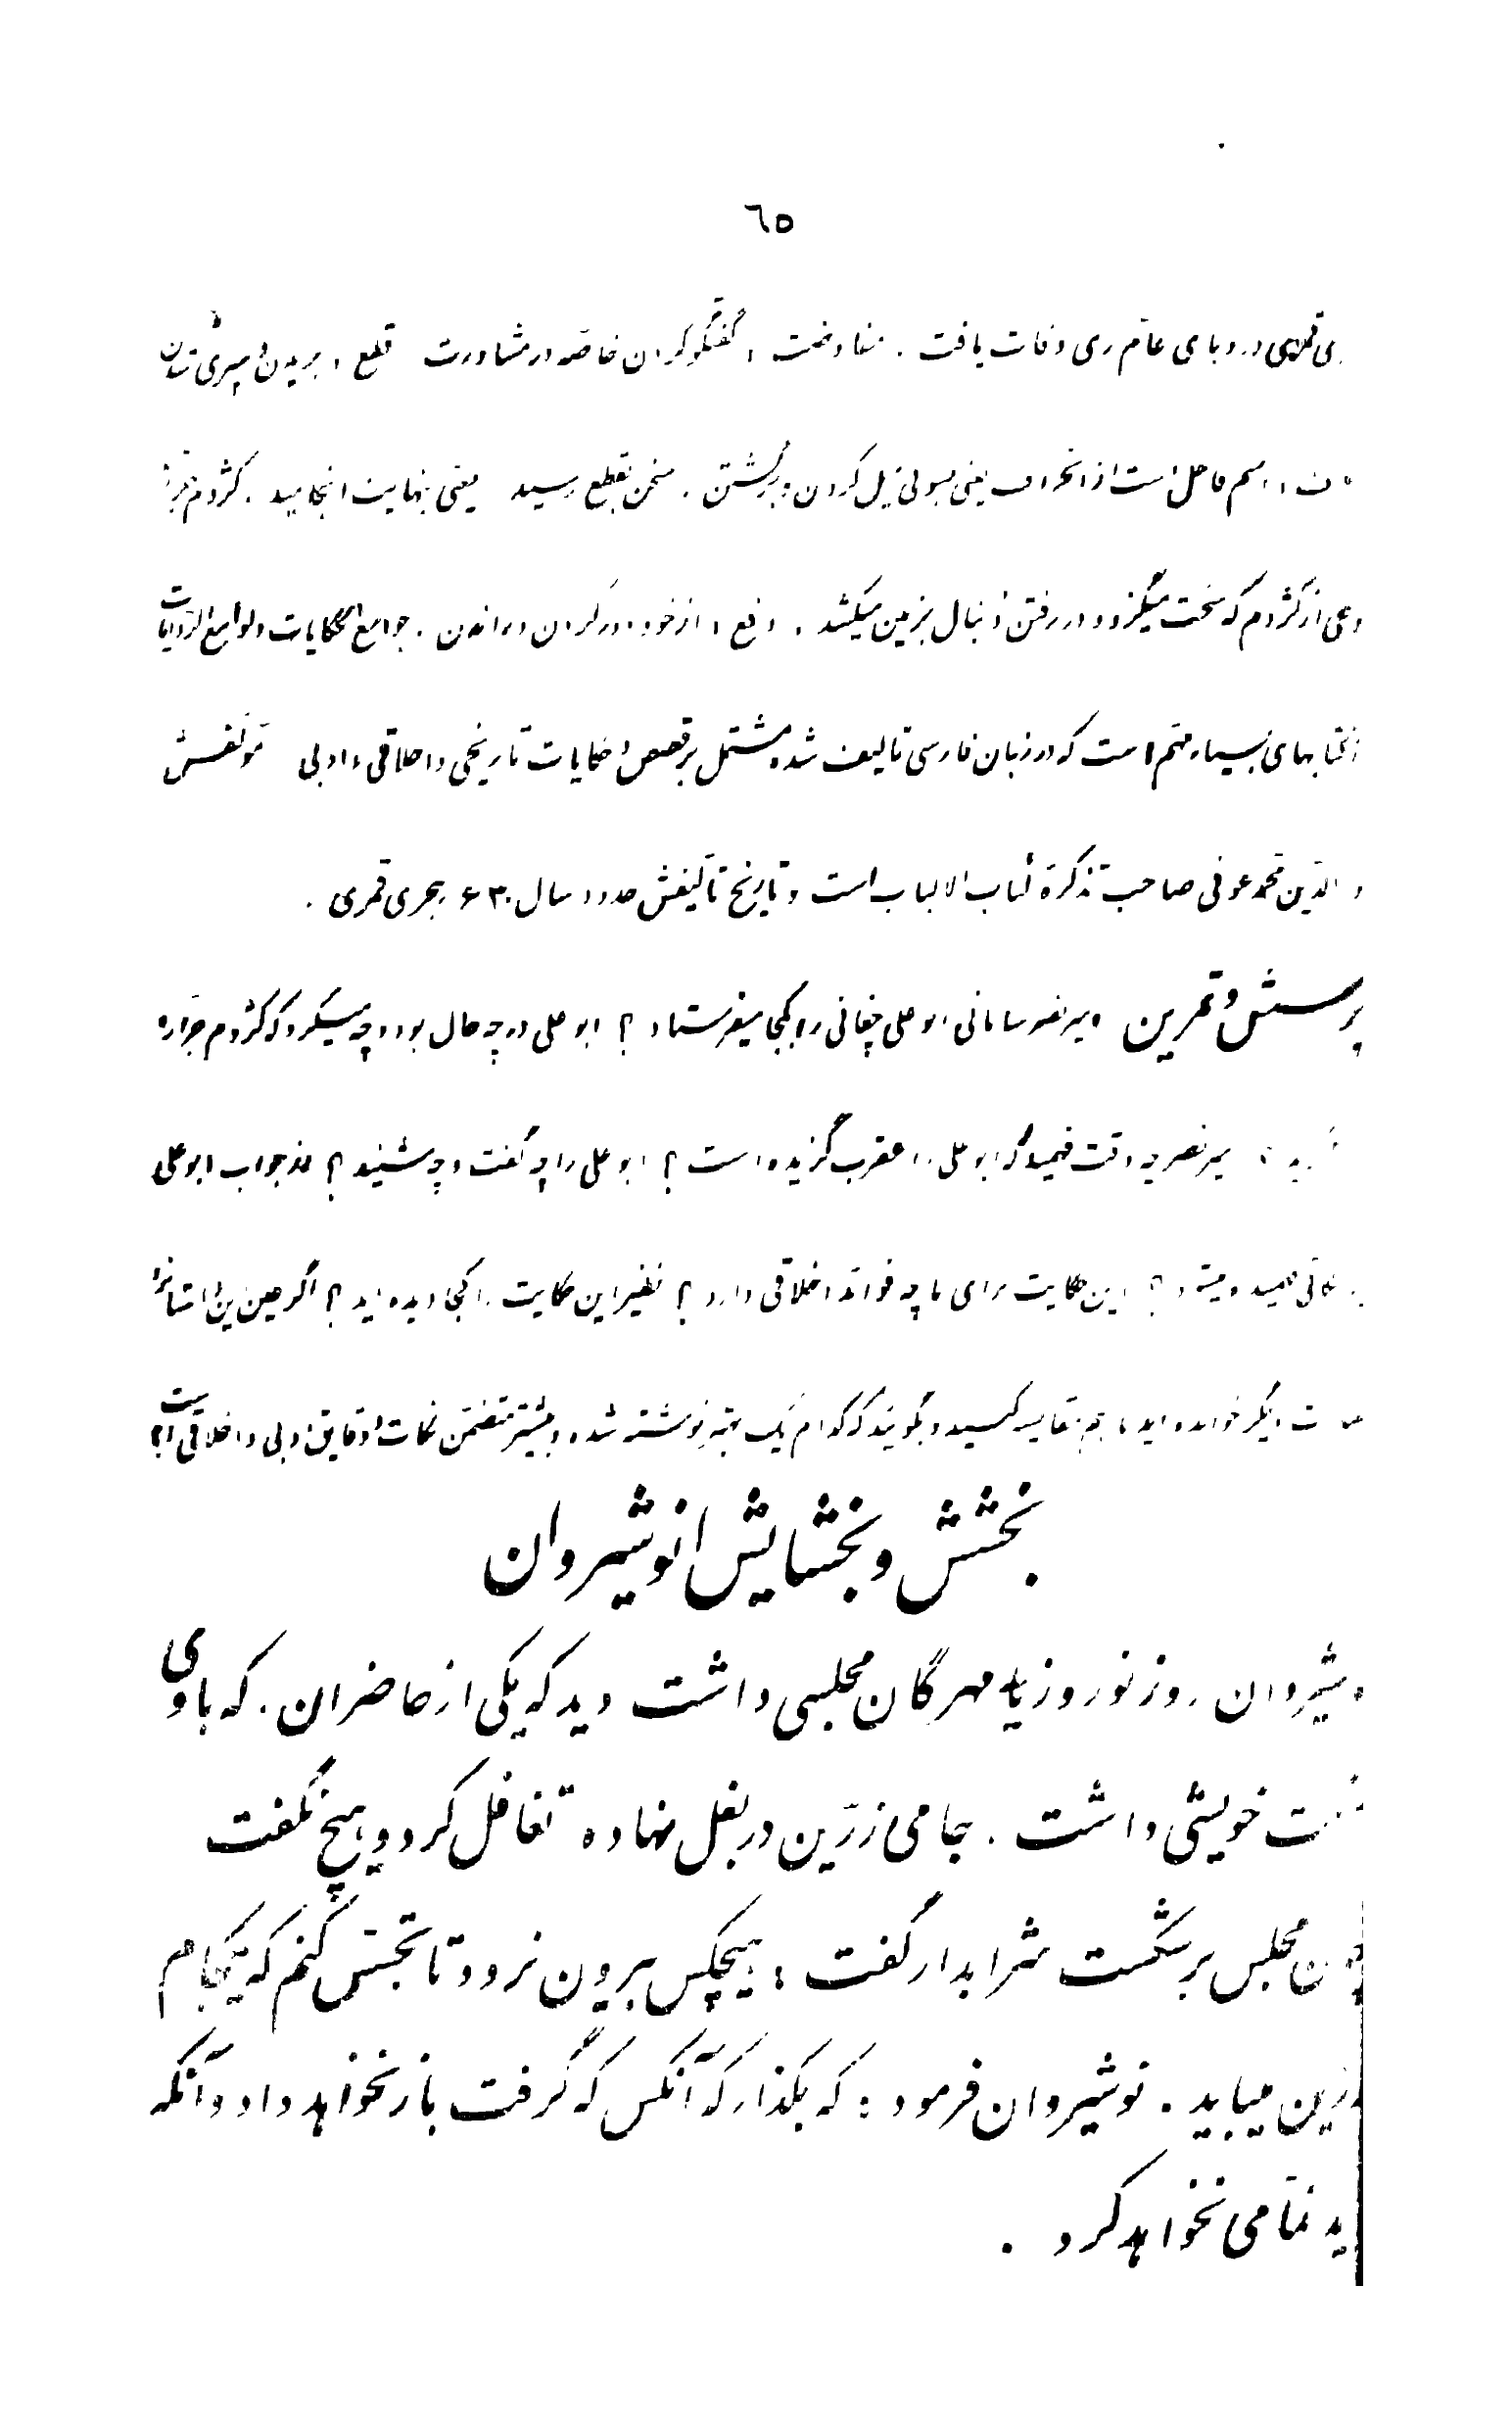 ٦٥
قمری در وبای عام ری وفات یافت . مفاوضت ، گفتگو کردن خاصه در مشاورت قطع ، بریدن و سپری شدن
اسم فاعل است از انحراف یعنی بسوئی میل کردن و برگشتن . سخن بقطع رسید یعنی بنهایت انجامید . کژدم
از کژدم که سخت میگزد و در رفتن دنبال بزمین میکشد . دفع ، از خود دور کردن و راندن . جوامع الحکایات و لوامع الروایات
کتابهای بسیار مهم است که در زبان فارسی تالیف شده مشتمل بر قصص و حکایات تاریخی و اخلاقی و ادبی مؤلفش
الدین محمد عوفی صاحب تذکرة لباب الالباب است و تاریخ تألیفش حدود سال ۶۳۰ هجری قمری .
پرسش و تمرین امیر نصر سامانی ابوعلی چغانی را بکجا میفرستاد ؟ ابوعلی در چه حال بود و چه میکرد که کژدم جراره
میر نصر چه وقت فهمید که ابوعلی را عقرب گزیده است ؟ ابوعلی را چه گفت و چه شنید ؟ از جواب ابوعلی
فهمیده میشود ؟ این حکایت برای ما چه فوائد اخلاقی دارد ؟ نظیر این حکایت را کجا دیده اید ؟ اگر عین این داستانرا
دیگر خوانده اید با هم مقایسه کنید و بگوئید که کدام یک بهتر نوشته شده و بیشتر متضمن نکات و دقایق ادبی و اخلاقی است ؟
بخشش و بخشایش انوشیروان
وشیروان روز نوروز یا مهرگان مجلسی داشت دید که یکی از حاضران . که با وی
خویشی داشت . جامی زرین در بغل نهاده تغافل کرد و هیچ نگفت
چون مجلس برشکست شرابدار گفت : هیچکس بیرون نرود تا تجسس کنم که یکجام
زرین میباید . نوشیروان فرمود : که بگذار که آنکس که گرفت باز نخواهد داد و آنکه
دید نمّامی نخواهد کرد .